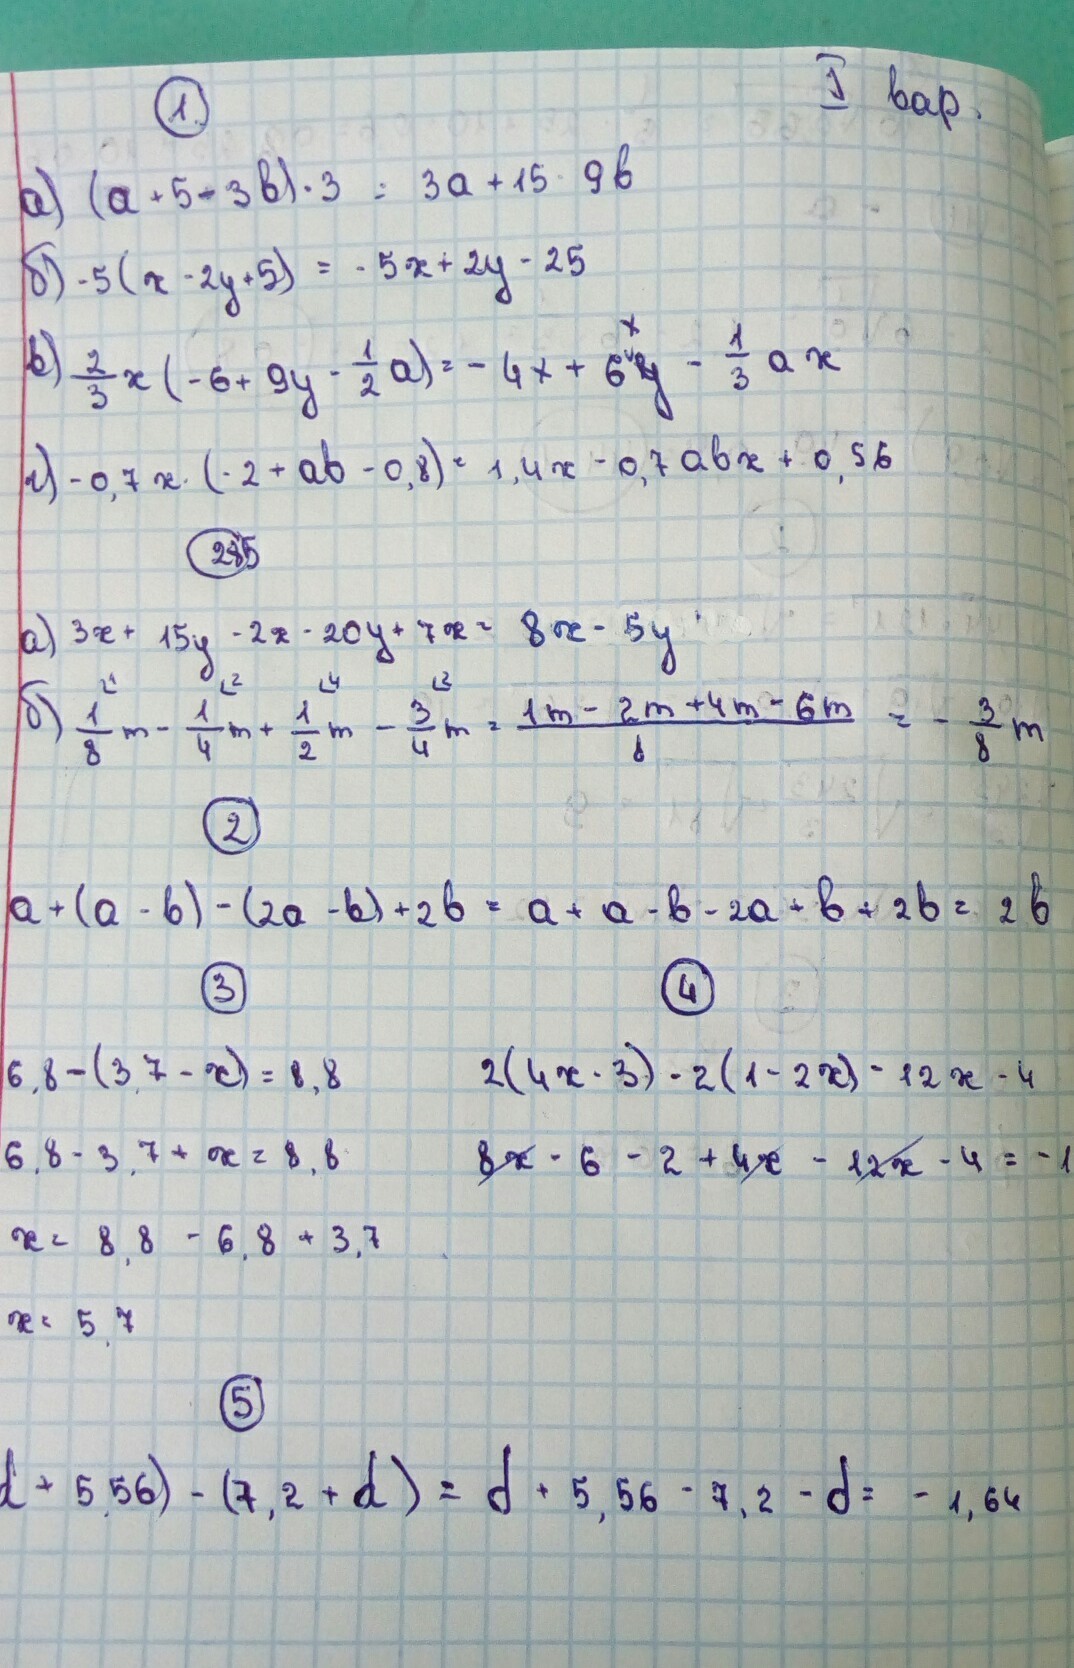 I вар.
1.
а) (a + 5 - 3b) · 3 = 3a + 15 - 9b
б) -5(x - 2y + 5) = -5x + 2y - 25
в) 2/3 x (-6 + 9y - 1/2 a) = -4x + 6xy - 1/3 a x
г) -0,7x · (-2 + ab - 0,8) = 1,4x - 0,7abx + 0,56
285
а) 3x + 15y - 2x - 20y + 7x = 8x - 5y
б) 1/8 m - 1/4 m + 1/2 m - 3/4 m = (1m - 2m + 4m - 6m)/8 = - 3/8 m
2
a + (a - b) - (2a - b) + 2b = a + a - b - 2a + b + 2b = 2b
3
6,8 - (3,7 - x) = 8,8
6,8 - 3,7 + x = 8,8
x = 8,8 - 6,8 + 3,7
x = 5,7
4
2(4x - 3) - 2(1 - 2x) - 12x - 4
8x - 6 - 2 + 4x - 12x - 4 = -1
5
d + 5,56) - (7,2 + d) = d + 5,56 - 7,2 - d = -1,64